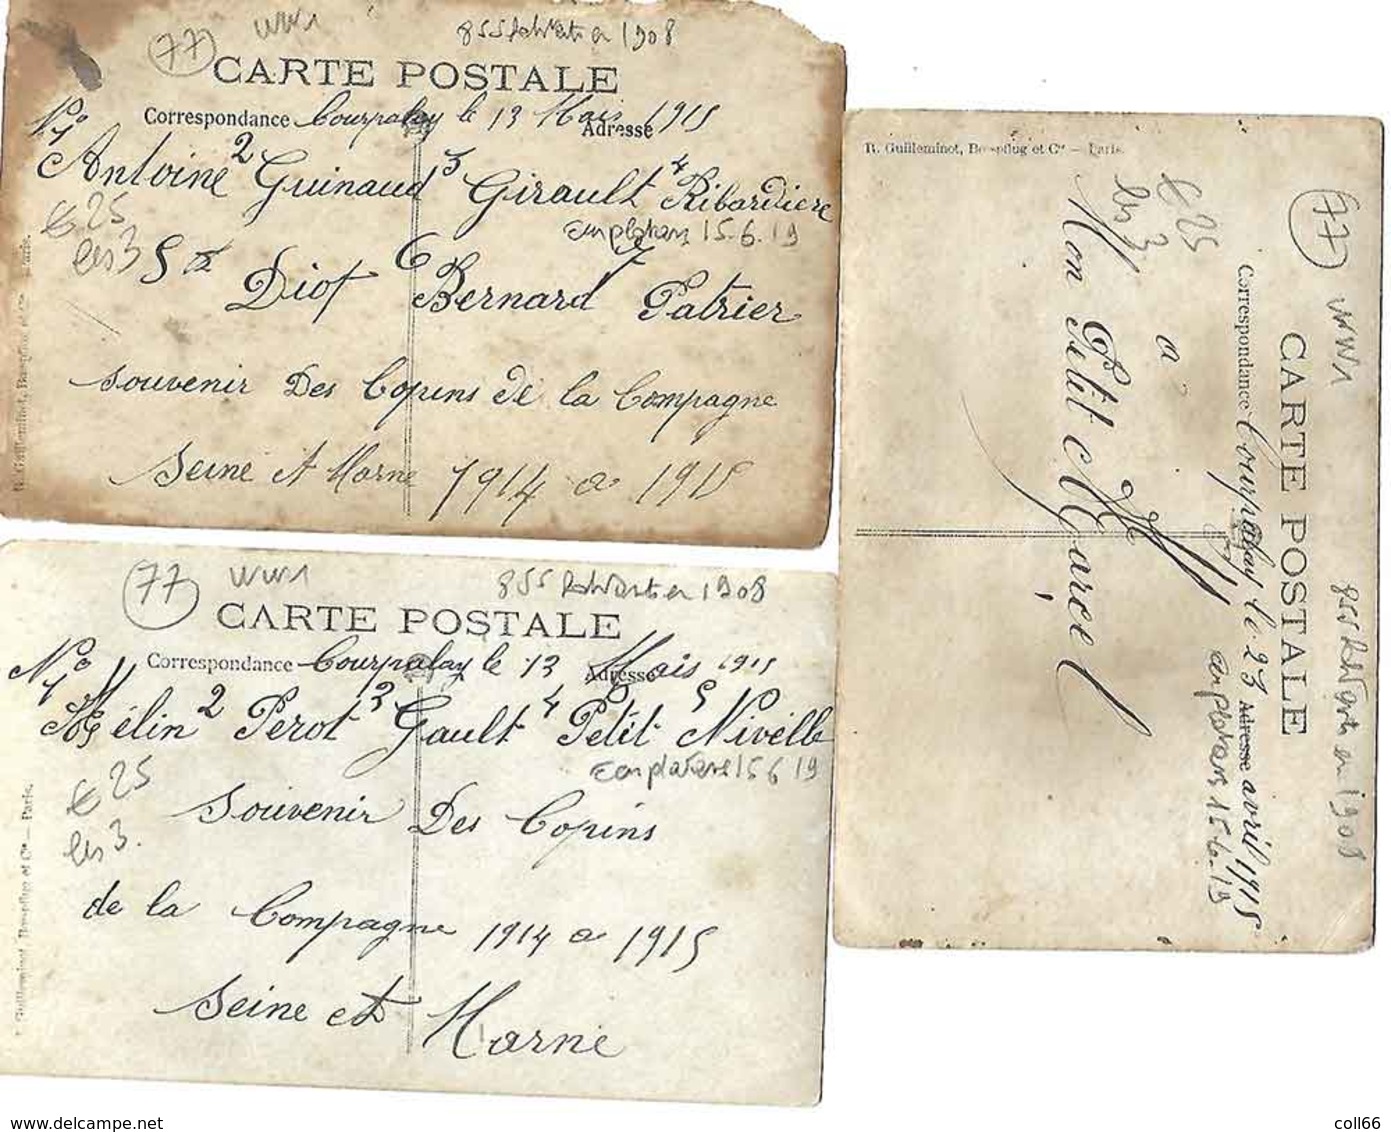 77 WW1 855 1908
CARTE POSTALE
Correspondance Courpalay le 13 Mais 1915
Adresse
No 1 Antoine 2 Guinaud 3 Girault 4 Ribardiere
€ 25 15.6.19
les 3 5 Diot 6 Bernard 7 Patrier
souvenir Des Copins de la Compagne
Seine et Marne 1914 a 1915
R. Guilleminot, Bœspflug et Cie — Paris.
77 WW1 855 1908
CARTE POSTALE
Correspondance Courpalay le 13 Mais 1915
Adresse
No 1 Mélin 2 Perot 3 Gault 4 Petit 5 Nivelle
€ 25 15 6 19
les 3.
Souvenir Des Copins
de la Compagne 1914 a 1915
Seine et Marne
R. Guilleminot, Bœspflug et Cie — Paris.
R. Guilleminot, Bœspflug et Cie — Paris.
77 WW1 855 1908
CARTE POSTALE
Correspondance Courpalay le 23 avril 1915
Adresse
15-6-19
€ 25
les 3
a
Mon Petit Marcel
www.delcampe.net
coll66